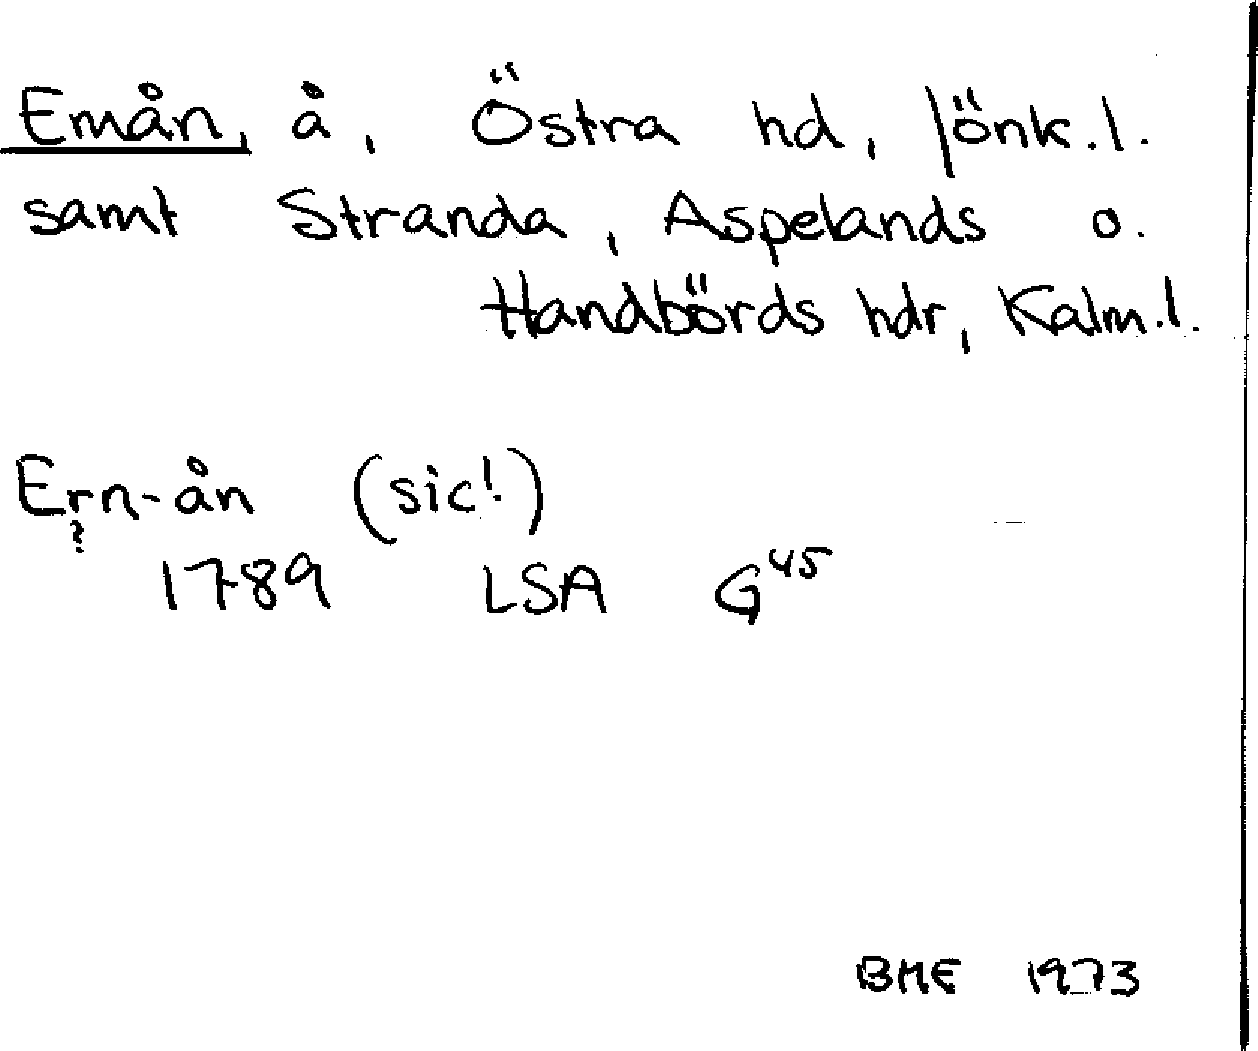 Emån, å, Östra hd, Jönk.l.
samt Stranda, Aspelands o.
Handbörds hdr, Kalm.l.
Ern-ån (sic!)
?
1789 LSA G45
BME 1973